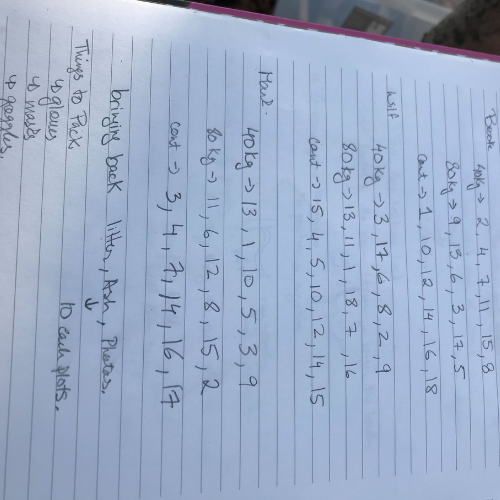 40kg → 2, 4, 7, 11, 15, 8
80kg → 9, 13, 6, 3, 17, 5
cont → 1, 10, 12, 14, 16, 18
40kg → 3, 17, 6, 8, 2, 9
80kg → 13, 11, 1, 18, 7, 16
cont → 15, 4, 5, 10, 12, 14, 15
40kg → 13, 1, 10, 5, 3, 9
80kg → 11, 6, 12, 8, 15, 2
cont → 3, 4, 7, 14, 16, 17
bringing back litter, Ash, Photos.
↓
Things to Pack 10 each plots.
↳ gloves
↳ masks
↳ goggles.